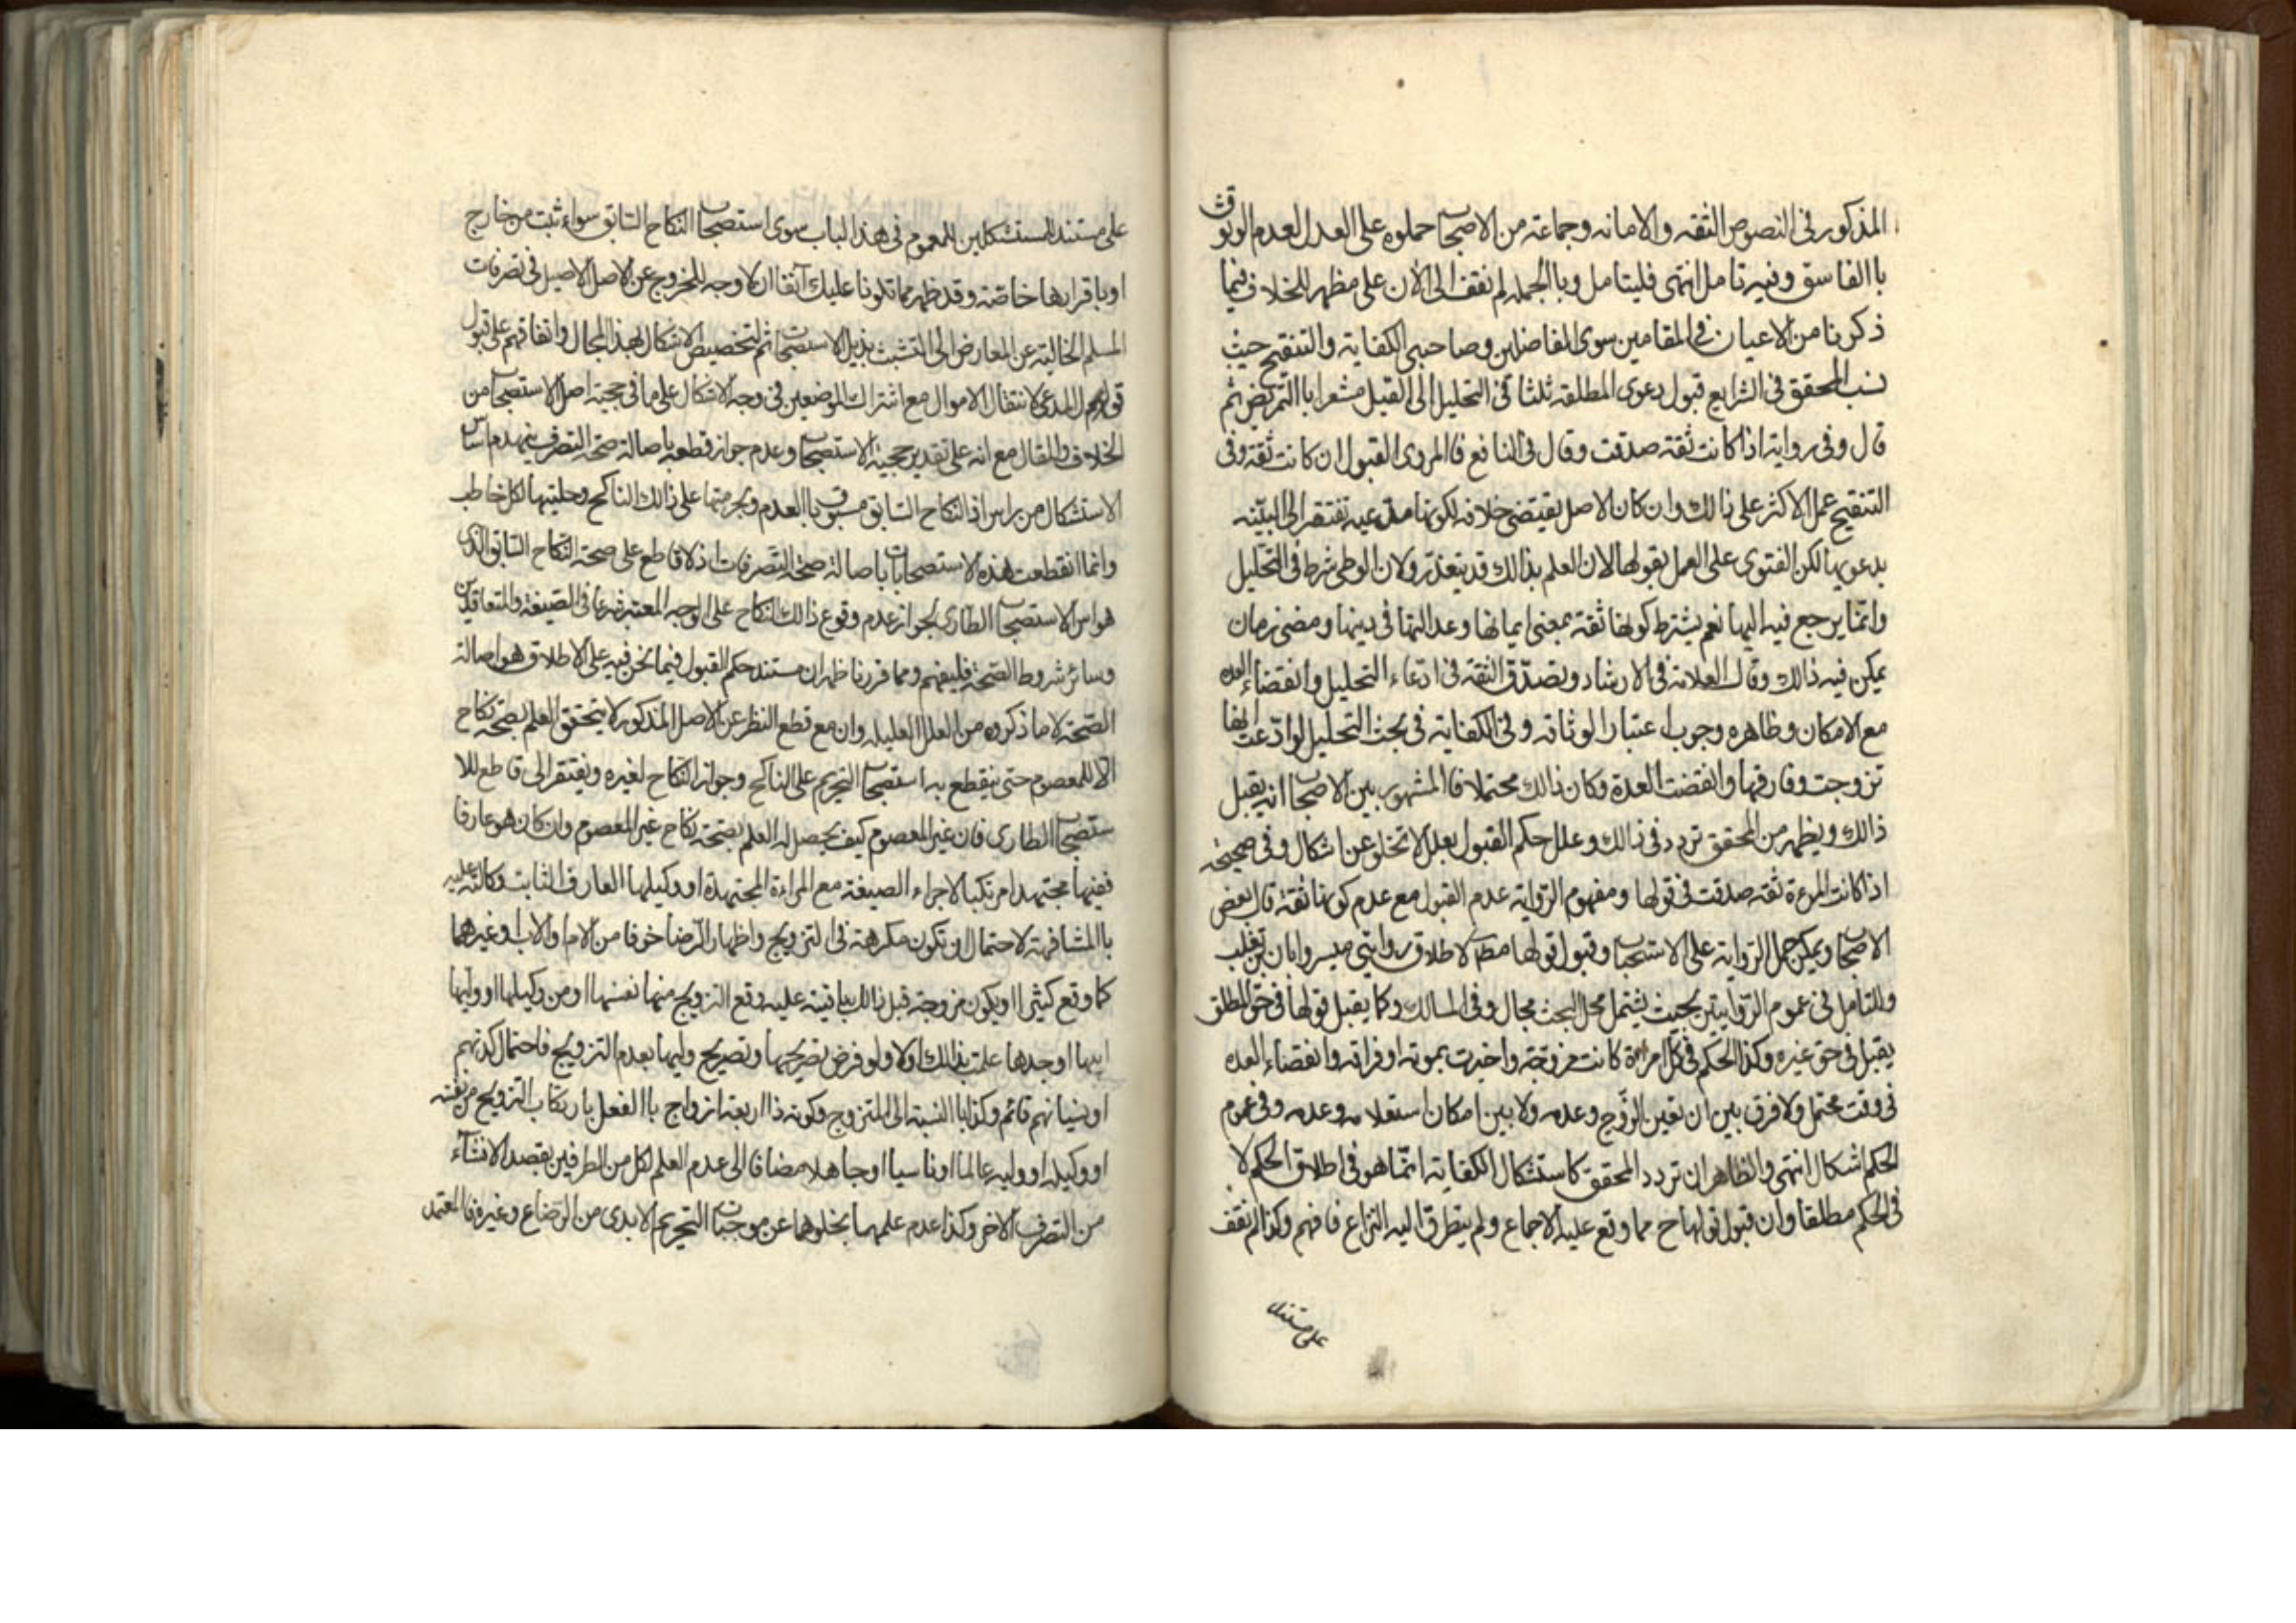 المذكور في النصوص الثقه والامانه وجماعته من الاصحاب حملوه على العدل لعدم الوثوق
باالفاسق وفيه تامل انتهى فليتامل وباالجمله لم نقف الى الآن على مظهر للخلاف فيما
ذكرنا من الاعيان في المقامين سوى الفاضلين وصاحبي الكفاية والتنقيح حيث
نسب المحقق في الشرايع قبول دعوى المطلقه ثلثا في التحليل الى القيل مشعرا باالتمريض ثم
قال وفي رواية اذا كانت ثقة صدقت وقال في النافع فالمروى القبول ان كانت ثقة وفي
التنقيح عمل الاكثر على ذالك وان كان الاصل يقتضي خلافه لكونها مدعيه تفتقر الى البيّنه
بدعويها لكن الفتوى على العمل بقولها لان العلم بذالك قد يتعذر ولان الوطى شرط في التحليل
وانما يرجع فيه اليها نعم يشترط كونها ثقة بمعنى ايمانها وعدالتها في دينها ومضى زمان
يمكن فيه ذالك وقال العلامة في الارشاد وتصدّق الثقة في ادعاء التحليل وانقضاء العده
مع الامكان وظاهره وجوب اعتبار الوثاقه وفي الكفاية في بحث التحليل لو ادّعت انها
تزوجت وفارقها وانقضت العدة وكان ذالك محتملا فالمشهور بين الاصحاب انه يقبل
ذالك ويظهر من المحقق تردد في ذالك وعلل حكم القبول بعلل لا تخلو عن اشكال وفي صحيحه
اذا كانت المرءة ثقه صدقت في قولها ومفهوم الرّواية عدم القبول مع عدم كونها ثقة قال بعض
الاصحاب ويمكن حمل الرّواية على الاستحباب وقبول قولها مط لاطلاق روايتي ميسر وابان بن تغلب
وللتامل في عموم الرّوايتين بحيث يشتمل محل البحث مجال وفي المسالك وكما يقبل قولها في حق المطلق
يقبل في حق غيره وكذا الحكم في كل امراة كانت مزوّجة واخبرت بموته او فراقه وانقضاء العده
في وقت محتمل ولا فرق بين ان تعين الزّوج وعدمه ولا بين امكان استعلامه وعدمه وفي عموم
الحكم اشكال انتهى والظاهر ان تردد المحقق كاستشكال الكفاية انمّا هو في اطلاق الحكم لا
في الحكم مطلقا وان قبول قولها ح مما وقع عليه الاجماع ولم يتطرق اليه النزاع فافهم وكذا لم نقف
على مستند
على مستند للمستشكلين للعموم في هذا الباب سوى استصحاب النكاح السّابق سواء ثبت من خارج
او باقرارها خاصّته وقد ظهر مما تلونا عليك آنفا ان لا وجه للخروج عن الاصل الاصيل في تصرفات
المسلم الخالية عن المعارض الى التشبث بذيل الاستصحاب ثم لتخصيص الاشكال بهذا المجال واتفاقهم على قبول
قول المدعى لانتقال الاموال مع اشتراك الموضعين في وجه الاشكال على ما في حجية اصل الاستصحاب من
الخلاف والمقال مع انه على تقدير حجية الاستصحاب وعدم جواز قطعه باصالة صحة التصرف ينهدم اساس
الاستشكال من راس اذ النكاح السّابق مسبوق باالعدم وبحرمتها على ذالك الناكح وحليتها لكل خاطب
وانما انقطعت هذه الاستصحابات باصالة صحة التّصرفات اذ لا قاطع على صحة النكاح السّابق الذي
هو اس الاستصحاب الطارى لجواز عدم وقوع ذالك النكاح على الوجه المعتبر شرعا في الصّيغة والمتعاقدين
وسائر شروط الصّحة فليفهم ومما قررنا ظهر ان مستند حكم القبول فيما نحن فيه على الاطلاق هو اصالة
الصّحة لا ما ذكروه من العلل العليله وان مع قطع النظر عن الاصل المذكور لا يتحقق العلم بصحة نكاح
الا للمعصوم حتى ينقطع به استصحاب التحريم على الناكح وجواز النكاح لغيره ويفتقر الى قاطع للا
ستصحاب الطارى فان غير المعصوم كيف يحصل له العلم بصحة نكاح غير المعصوم وان كان هو عارفا
فقيها مجتهدا مرتكبا لاجراء الصيغة مع المراءة المجتهدة او وكيلها العارف الثابت وكالته عليه
باالمشافهة لاحتمال ان تكون مكرهة في التزويج واظهار الرّضا خوفا من الام والاب وغيرهما
كما وقع كثيرا او يكون مزوجة قبل ذالك باقية عليه وقع التزويج منها نفسها او من وكيلها او وليها
ابيها او جدها علمت بذالك او لا ولو فرض تصريحها وتصريح وليها بعدم التزويج فاحتمال كذبهم
او نسيانهم قائم وكذا باالنسبة الى المتزوج وكونه ذا اربعة ازواج باالفعل بارتكاب التزويج من نفسه
او وكيله او وليه عالما او ناسيا او جاهلا مضافا الى عدم العلم لكل من الطرفين بقصد الانشاء
من التصرف الاخر وكذا عدم علمهما بخلوهما عن موجبات التحريم الابدى من الرّضاع وغيره فالمعتمد